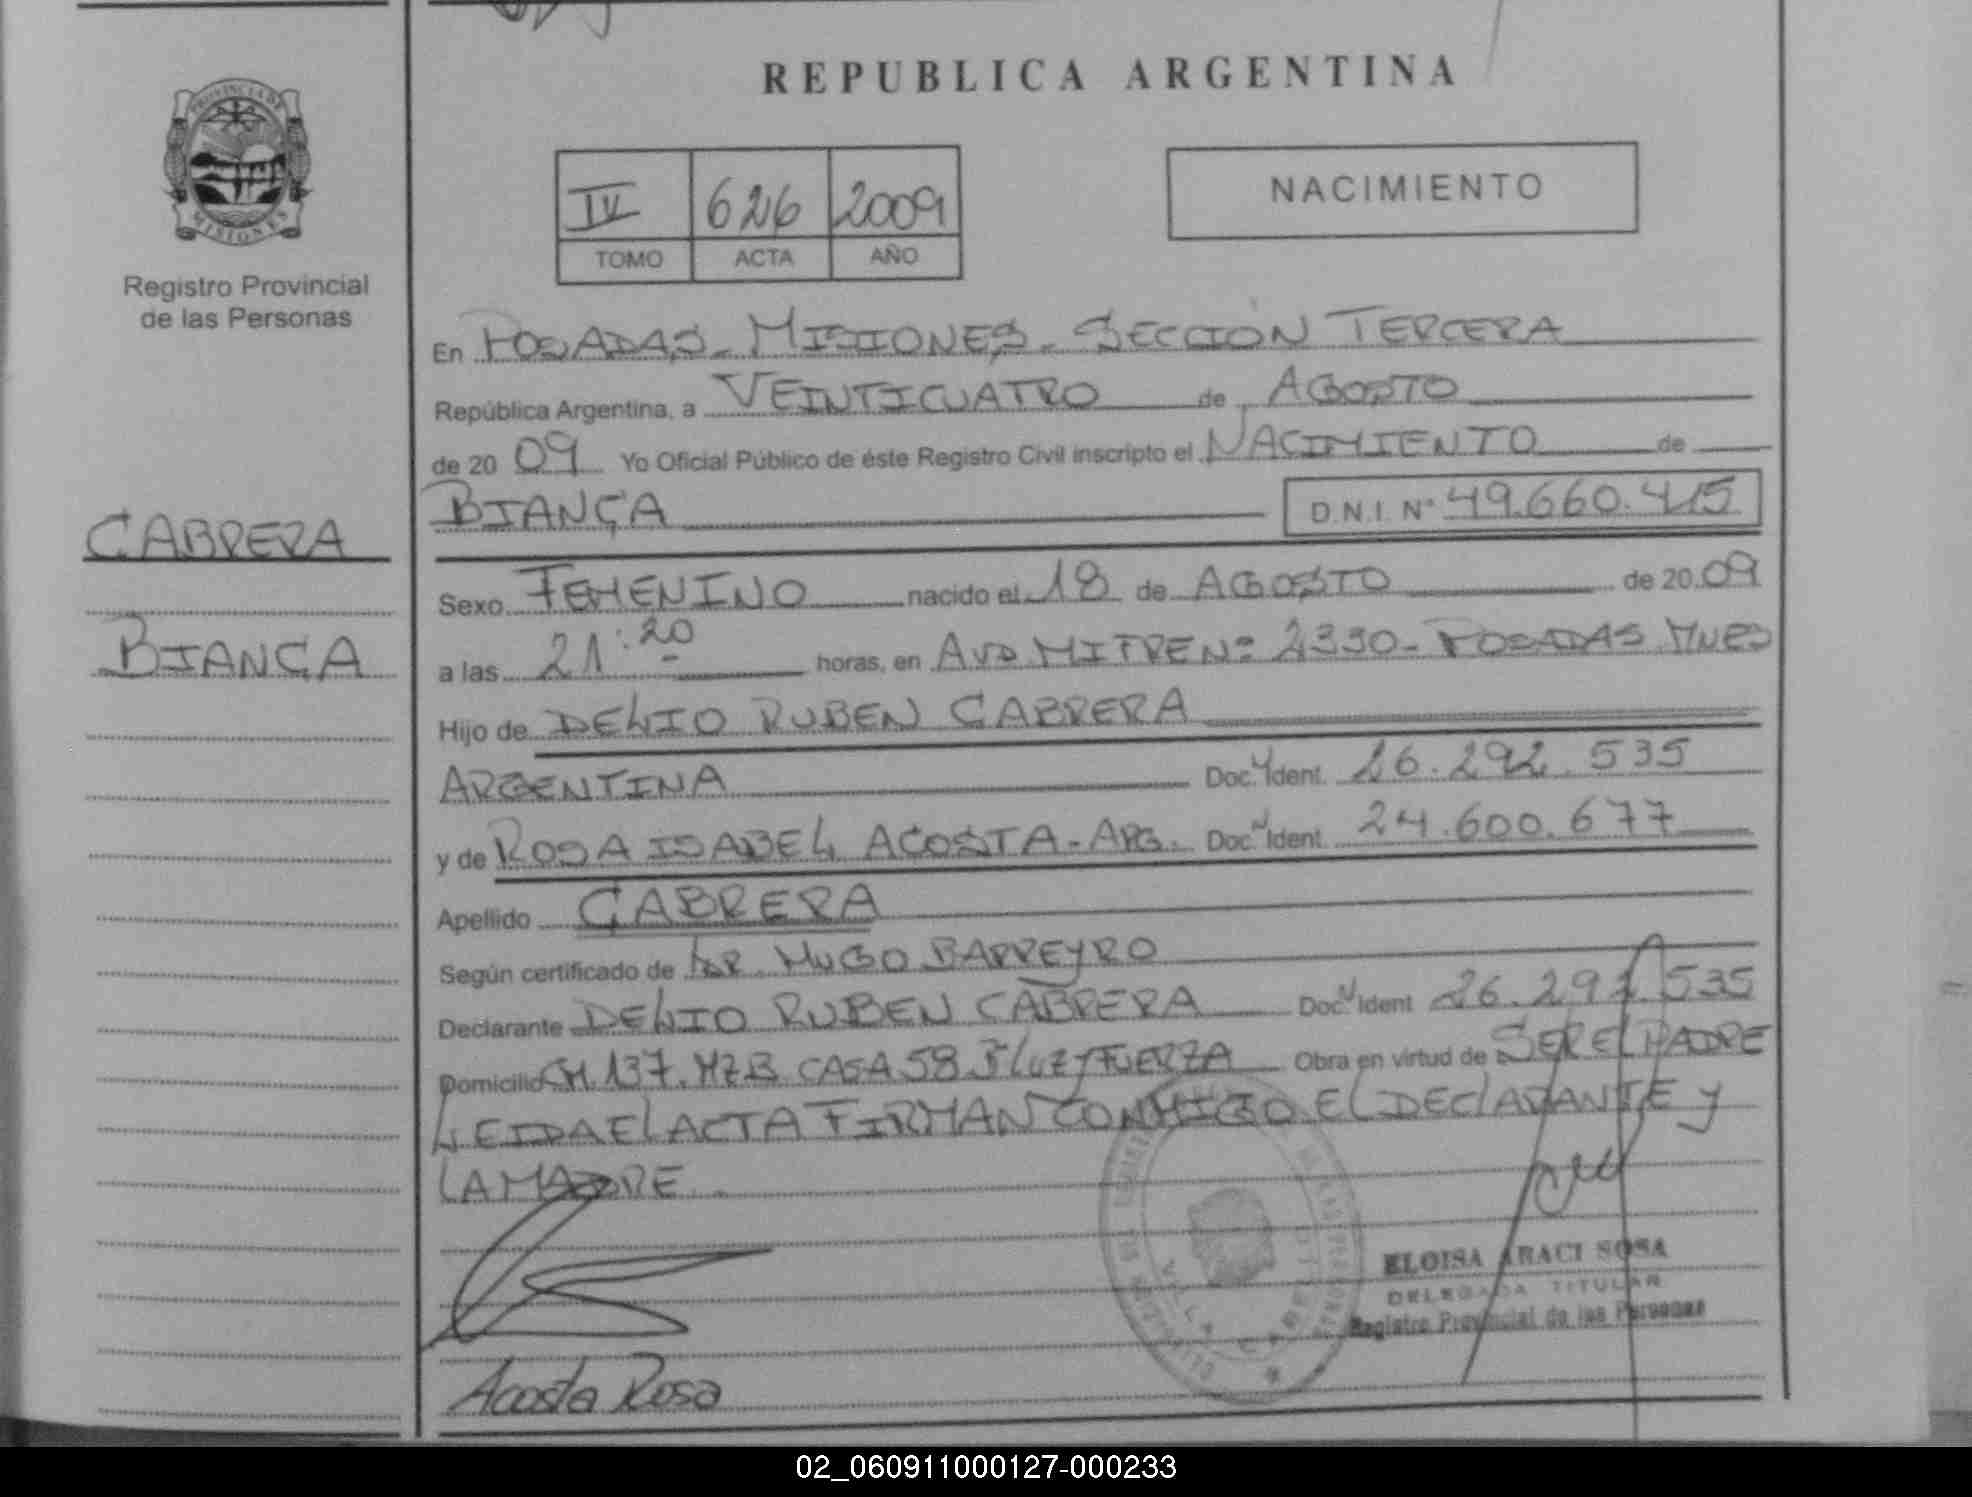 REPUBLICA ARGENTINA
PROVINCIA DE
MISIONES
Registro Provincial
de las Personas
IV 626 2009
TOMO ACTA AÑO
NACIMIENTO
En POSADAS - MISIONES - SECCION TERCERA
República Argentina, a VEINTICUATRO de AGOSTO
de 20 09 Yo Oficial Público de éste Registro Civil inscripto el NACIMIENTO de
BIANCA D.N.I. Nº 49.660.415
CABRERA
BIANCA
Sexo FEMENINO nacido el 18 de AGOSTO de 20 09
a las 21:20 horas, en AVD. MITRE Nº 2390 - POSADAS MNES
Hijo de DELIO RUBEN CABRERA
ARGENTINA Doc. Ident. 26.292.535
y de ROSA ISABEL ACOSTA - ARG. Doc. Ident. 24.600.677
Apellido CABRERA
Según certificado de DR. HUGO BARREYRO
Declarante DELIO RUBEN CABRERA Doc. Ident 26.292.535
Domicilio CH. 137. MZ B CASA 58 Bº LUZ Y FUERZA Obra en virtud de SER EL PADRE
LEIDA EL ACTA FIRMAN CONMIGO EL DECLARANTE Y
LA MADRE
ELOISA ARACI SOSA
DELEGADA TITULAR
Registro Provincial de las Personas
Acosta Rosa
02_060911000127-000233